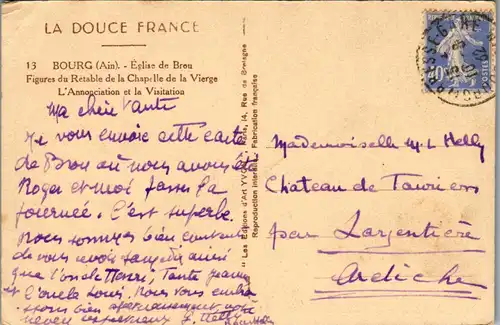 LA DOUCE FRANCE
13 BOURG (Ain). - Église de Brou
Figures du Rétable de la Chapelle de la Vierge
L'Annonciation et la Visitation
Ma chère Tante
Je vous envoie cette carte
de Brou où nous avons été
Roger et moi passer la
journée. C'est superbe.
Nous sommes bien contents
de vous avoir
que l'oncle Henri, Tante
et l'oncle Louis. Nous vous
tous bien affectueusement votre
neveu respectueux J. Helly
"Les Editions d'Art YVON", Paris, 14, Rue de Bretagne
Reproduction interdite. Fabrication française
POSTES
40
Mademoiselle M. L. Helly
Chateau de Tauriers
par Largentière
Ardèche